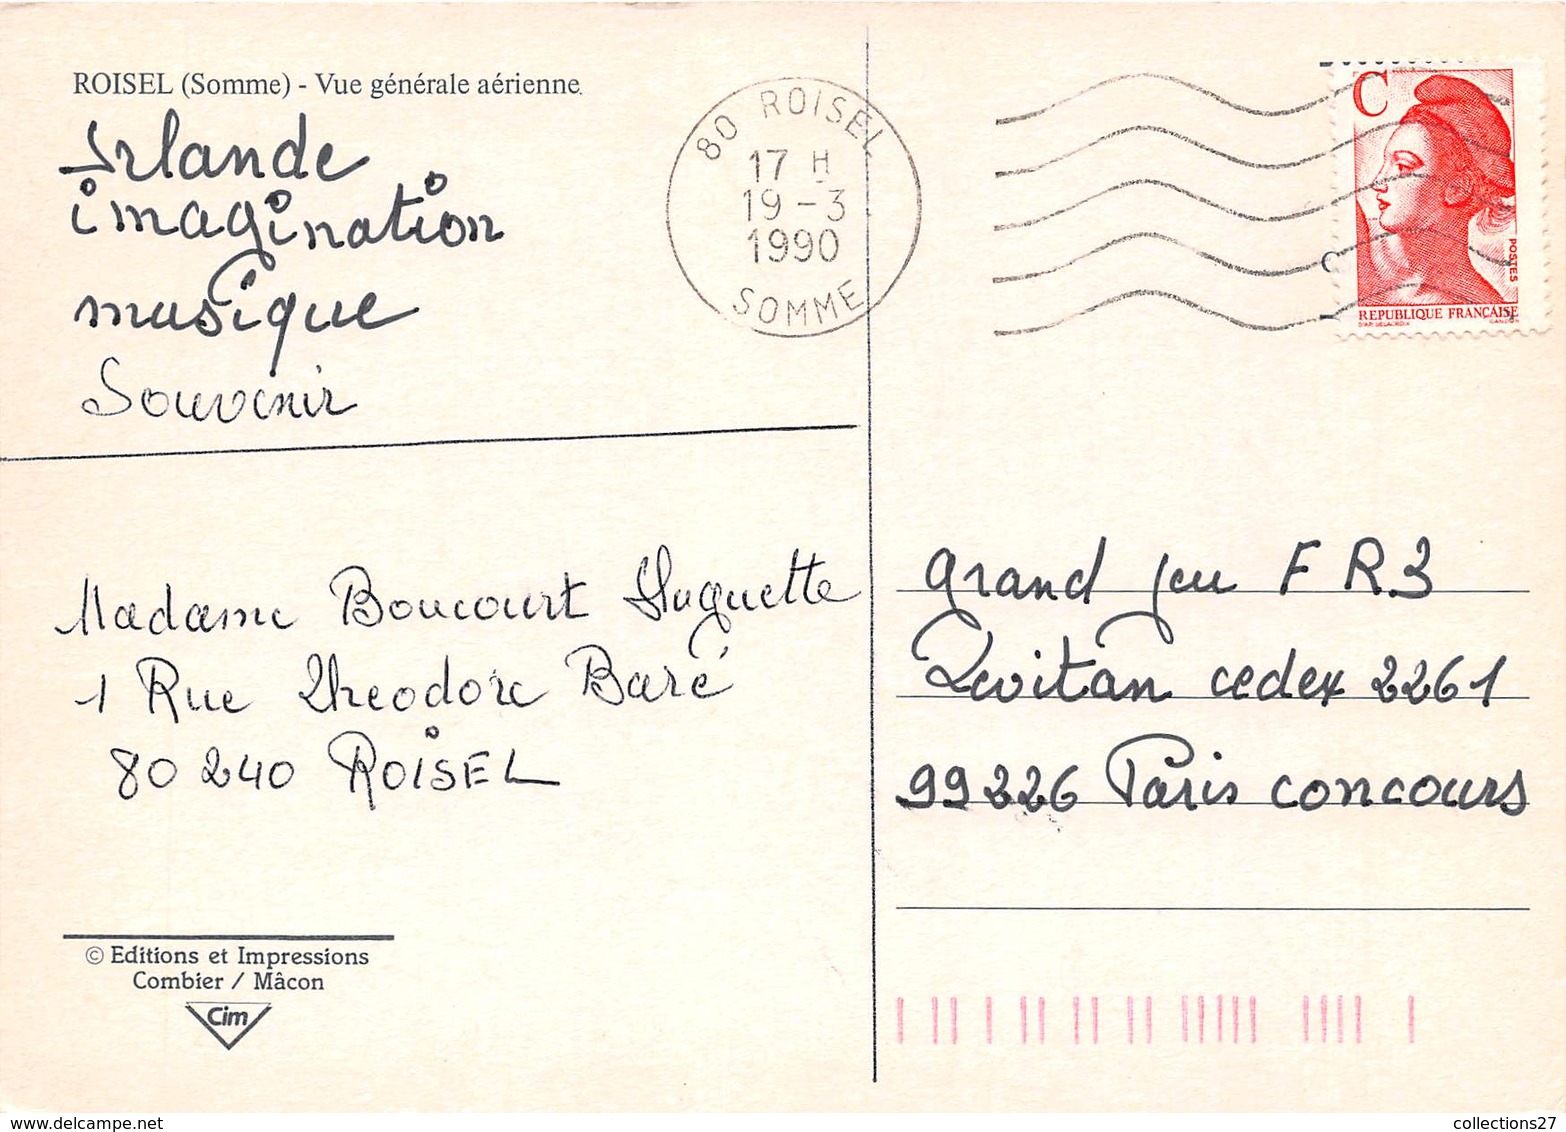 ROISEL (Somme) - Vue générale aérienne
Irlande
imagination
musique
Souvenir
80 ROISEL
17 H
19 - 3
1990
SOMME
C
POSTES
REPUBLIQUE FRANÇAISE
D'AP. DELACROIX GANDON
Madame Boucourt Huguette
1 Rue Théodore Baré
80 240 ROISEL
grand jeu FR3
Levitan cedex 2261
99226 Paris concours
© Editions et Impressions
Combier / Mâcon
Cim
collections27